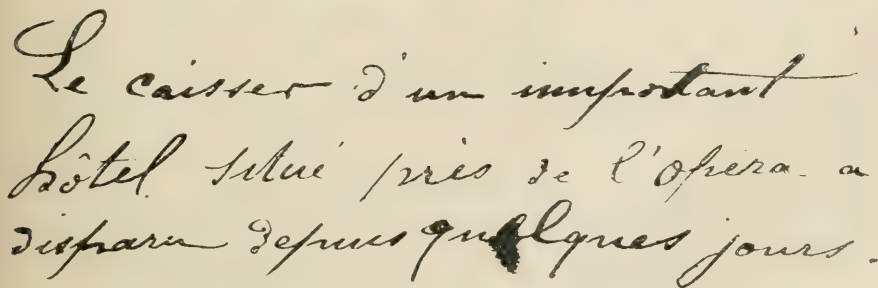 Le caisser d'un important
hôtel situé près de l'Opéra a
disparu depuis quelques jours.